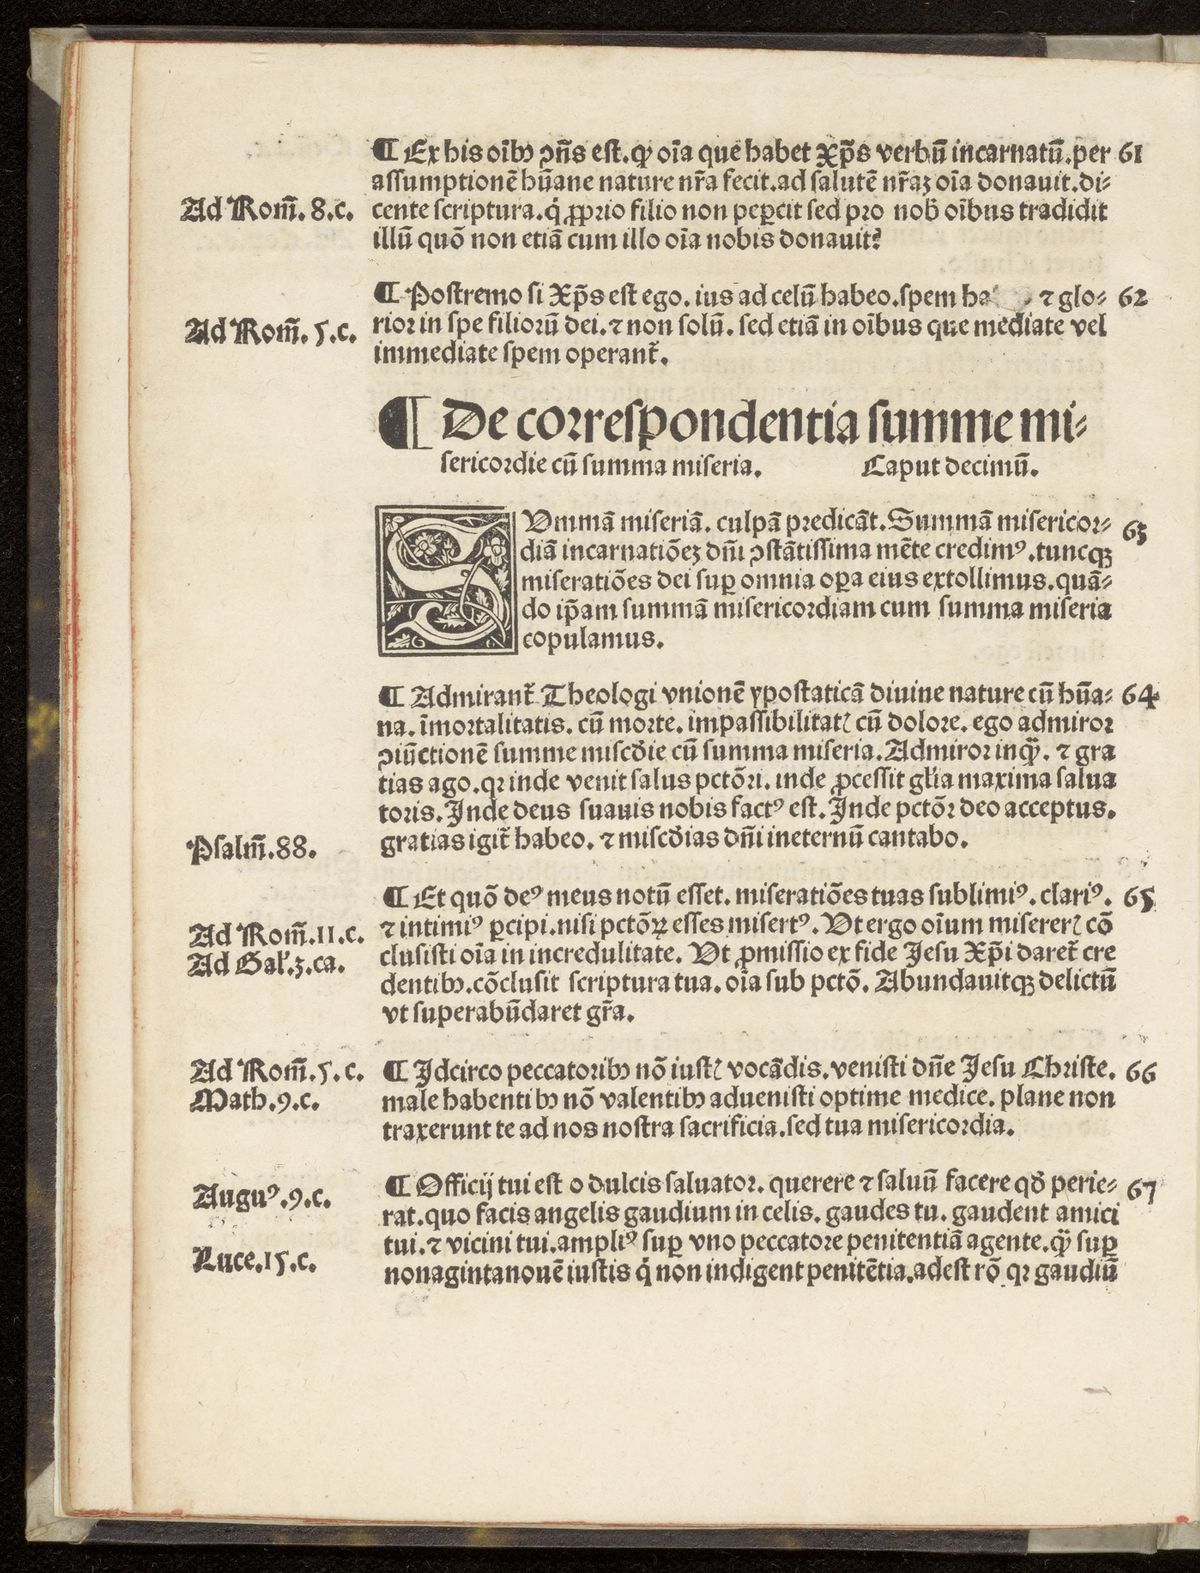 ¶ Ex his oĩbꝰ ꝯñs est. ꝙ oĩa que habet Xp̃s verbũ incarnatũ. per 61
assumptionẽ hũane nature nr̃a fecit. ad salutẽ nr̃aꝫ oĩa donauit. di⸗
Ad Rom̃. 8. c.
cente scriptura. q̇ ꝓprio filio non peꝑcit sed pro nob̃ oĩbus tradidit
illũ quõ non etiã cum illo oĩa nobis donauit?
¶ Postremo si Xp̃s est ego. ius ad celũ habeo. spem ⁊ glo⸗ 62
Ad Rom̃. 5. c.
rior in spe filiorũ dei. ⁊ non solũ. sed etiã in oĩbus que mediate vel
immediate spem operant̃.
¶ De correspondentia summe mi⸗
sericordie cũ summa miseria. Caput decimũ.
SVmmã miseriã. culpã predicãt. Summã misericor⸗ 63
diã incarnatiõeꝫ dñi ꝯstãtissima mẽte credimꝰ. tuncqꝫ
miseratiões dei suꝑ omnia oꝑa eius extollimus. quã⸗
do ip̃am summã misericordiam cum summa miseria
copulamus.
¶ Admirant̃ Theologi vnionẽ ypostaticã diuine nature cũ hũa⸗ 64
na. ĩmortalitatis. cũ morte. impassibilitatꝭ cũ dolore. ego admiror
ꝯiũctionẽ summe misc̃die cũ summa miseria. Admiror inqͣ̃. ⁊ gra
tias ago. qꝛ inde venit salus pctõri. inde ꝓcessit gl̃ia maxima salua
toris. Inde deus suauis nobis factꝰ est. Inde pctõr deo acceptus.
gratias igit̃ habeo. ⁊ misc̃dias dñi ineternũ cantabo.
Psalm̃. 88.
¶ Et quõ deꝰ meus notũ esset. miseratiões tuas sublimiꝰ. clariꝰ. 65
⁊ intimiꝰ ꝑcipi. nisi pctõꝝ esses misertꝰ. Vt ergo oĩum misererꝭ cõ
Ad Rom̃. 11. c.
clusisti oĩa in incredulitate. Vt ꝓmissio ex fide Jesu Xp̃i daret̃ cre
Ad Gal̃. 3. ca.
dentibꝰ. cõclusit scriptura tua. oĩa sub pctõ. Abundauitqꝫ delictũ
vt superabũdaret gr̃a.
Ad Rom̃. 5. c.
¶ Idcirco peccatoribꝰ nõ iustꝭ vocãdis. venisti dñe Jesu Christe. 66
Math. 9. c.
male habentibꝰ nõ valentibꝰ aduenisti optime medice. plane non
traxerunt te ad nos nostra sacrificia. sed tua misericordia.
¶ Officij tui est o dulcis saluator. querere ⁊ saluũ facere qd̃ perie⸗ 67
Auguꝰ. 9. c.
rat. quo facis angelis gaudium in celis. gaudes tu. gaudent amici
tui. ⁊ vicini tui. ampliꝰ suꝑ vno peccatore penitentiã agente. qͣ̃ suꝑ
Luce. 15. c.
nonagintanouẽ iustis q̇ non indigent penitẽtia. adest rõ qꝛ gaudiũ